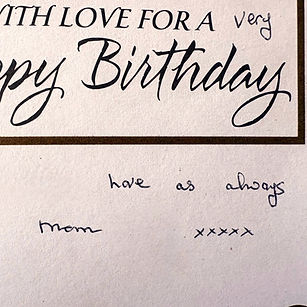 WITH LOVE FOR A very
ppy Birthday
Love as always
Mom xxxxx